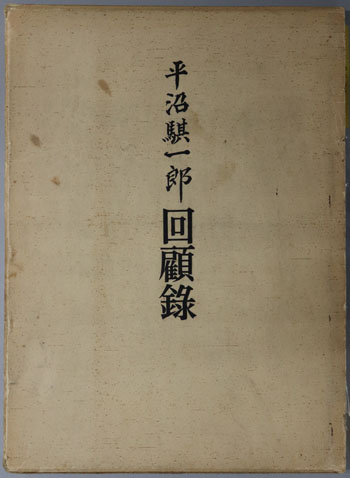 平沼騏一郎回顧錄